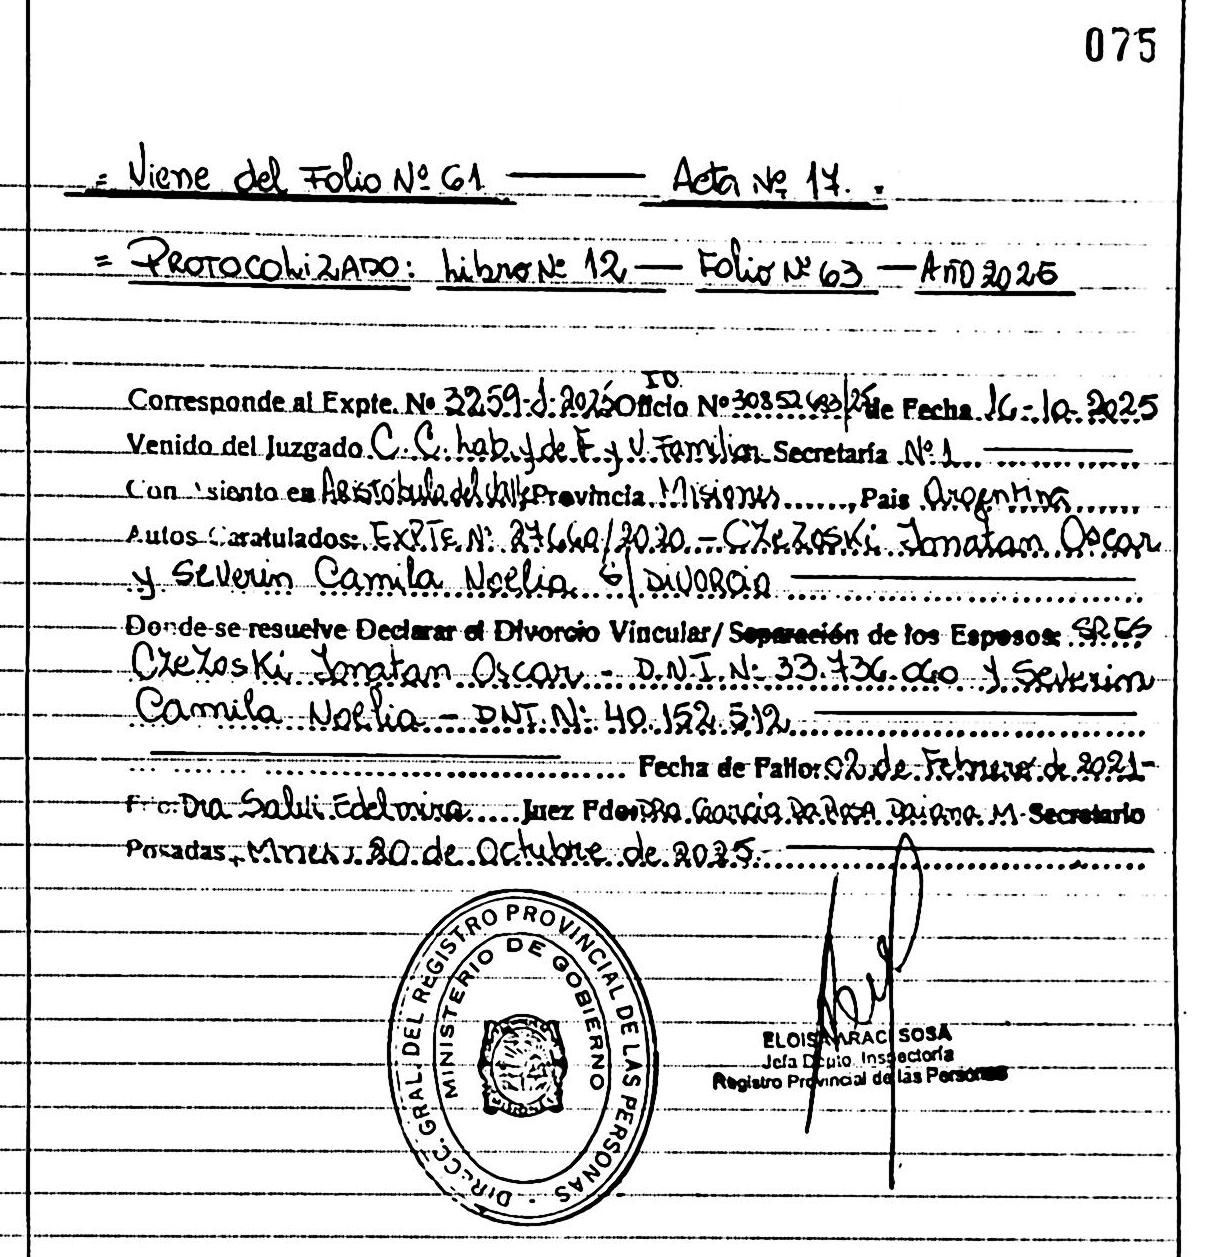 075
= Viene del Folio Nº 61 — Acta Nº 17.
= PROTOCOLIZADO: Libro Nº 12 — Folio Nº 63 — Año 2025
Corresponde al Expte. Nº 3259-J-2025 Oficio Nº 30852693/25 de Fecha 16-10-2025
Venido del Juzgado C. C. Lab. y de F. y V. Familiar Secretaría Nº 1
Con asiento en Aristóbulo del Valle Provincia Misiones, Pais Argentina
Autos Caratulados: EXPTE Nº 27660/2020 - CZEZOSKI Jonatan Oscar
y Severin Camila Noelia S/ DIVORCIO
Donde se resuelve Declarar el Divorcio Vincular/Separación de los Esposos: SRES
Czezoski Jonatan Oscar - D.N.I. Nº 33.736.060 y Severin
Camila Noelia - DNI. Nº 40.152.512
Fecha de Fallo: 02 de Febrero de 2021-
Fdo: Dra Salvi Edelmira Juez Fdo: Dra García Da Rosa Daiana M. Secretario
Posadas, Mnes: 20 de Octubre de 2025.
DIRECC. GRAL. DEL REGISTRO PROVINCIAL DE LAS PERSONAS
MINISTERIO DE GOBIERNO
ELOISA ARACI SOSA
Jefa Dpto. Inspectoría
Registro Provincial de las Personas